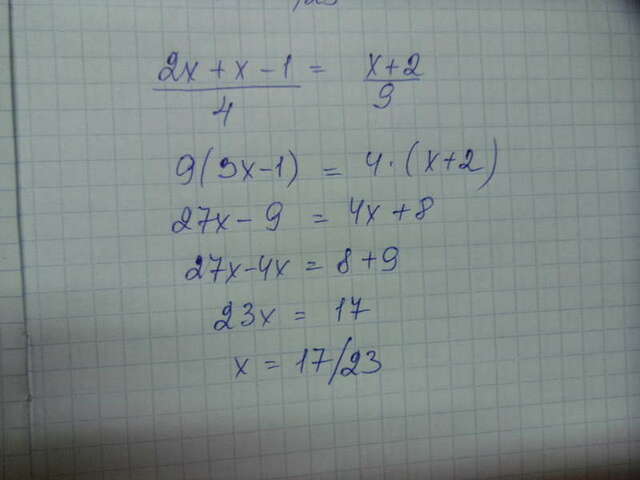 (2x + x - 1)/4 = (x+2)/9
9(3x-1) = 4·(x+2)
27x - 9 = 4x + 8
27x - 4x = 8 + 9
23x = 17
x = 17/23